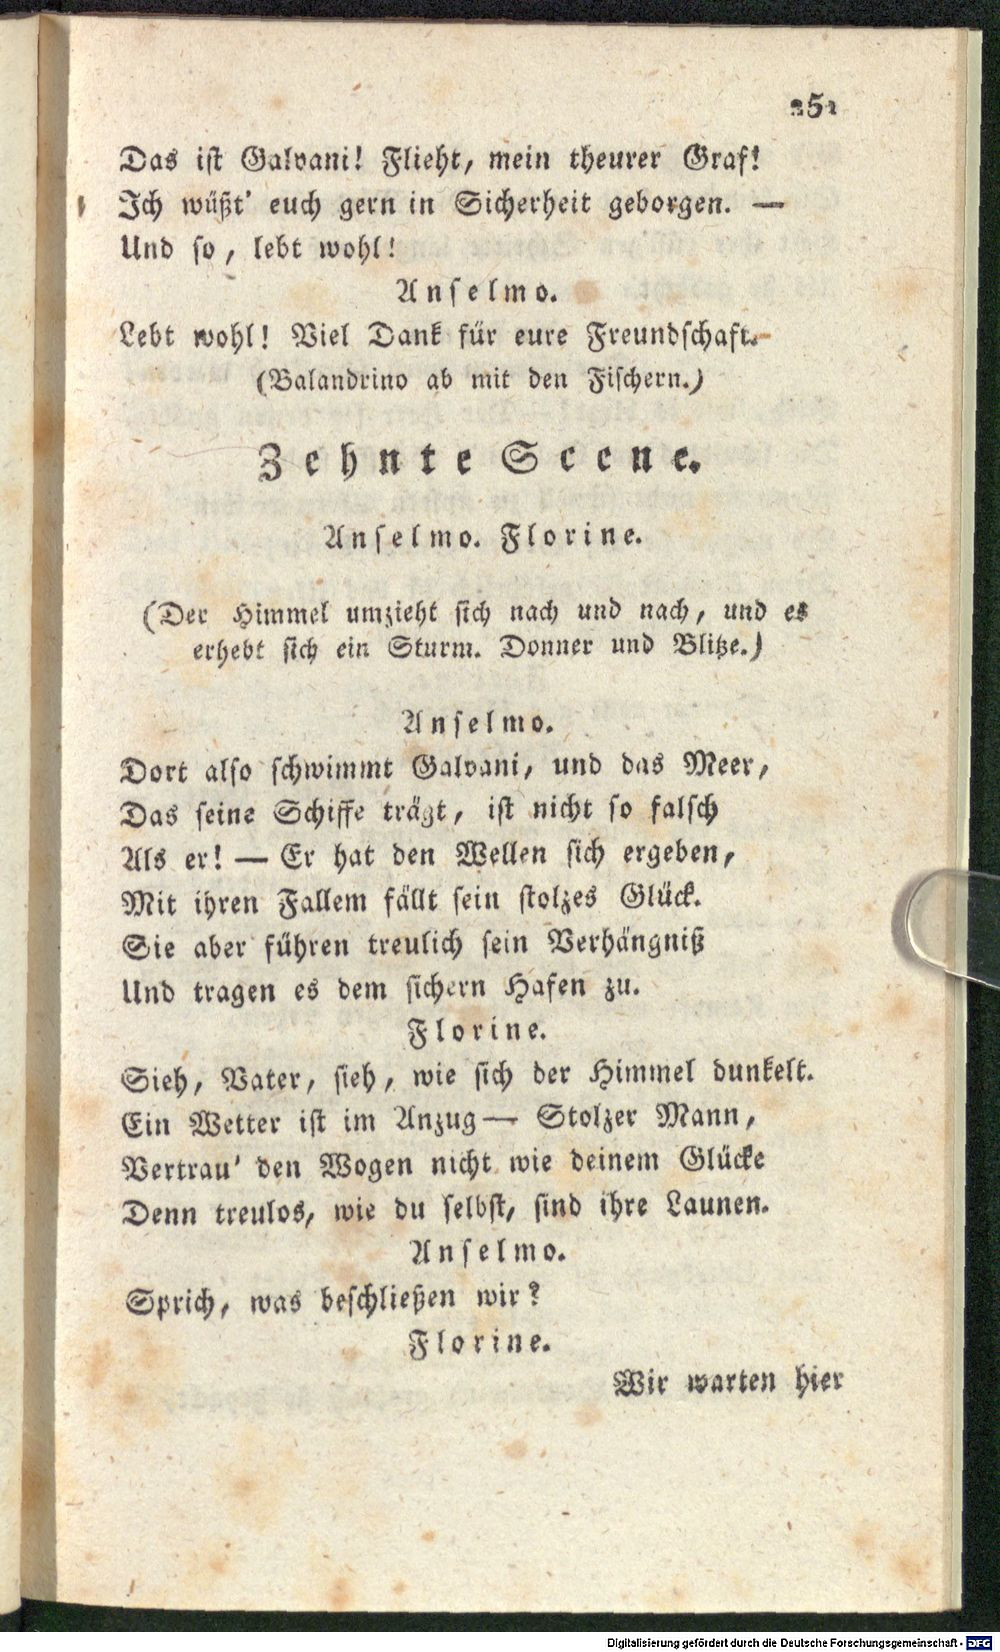 251
Das ist Galvani! Flieht, mein theurer Graf!
Ich wüßt' euch gern in Sicherheit geborgen. —
Und so, lebt wohl!
Anselmo.
Lebt wohl! Viel Dank für eure Freundschaft.
(Balandrino ab mit den Fischern.)
Zehnte Scene.
Anselmo. Florine.
(Der Himmel umzieht sich nach und nach, und es
erhebt sich ein Sturm. Donner und Blitze.)
Anselmo.
Dort also schwimmt Galvani, und das Meer,
Das seine Schiffe trägt, ist nicht so falsch
Als er! — Er hat den Wellen sich ergeben,
Mit ihren Fallem fällt sein stolzes Glück.
Sie aber führen treulich sein Verhängniß
Und tragen es dem sichern Hafen zu.
Florine.
Sieh, Vater, sieh, wie sich der Himmel dunkelt.
Ein Wetter ist im Anzug — Stolzer Mann,
Vertrau' den Wogen nicht wie deinem Glücke
Denn treulos, wie du selbst, sind ihre Launen.
Anselmo.
Sprich, was beschließen wir?
Florine.
Wir warten hier
Digitalisierung gefördert durch die Deutsche Forschungsgemeinschaft - DFG